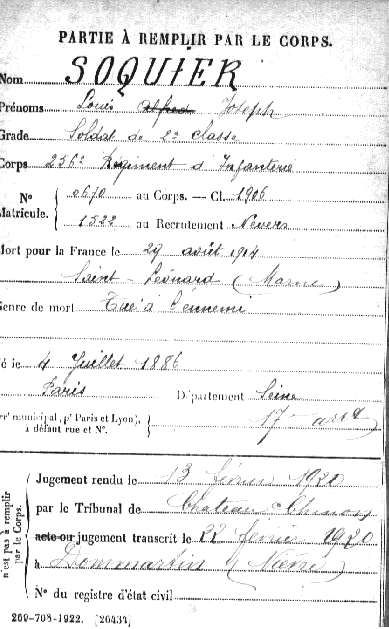 PARTIE À REMPLIR PAR LE CORPS.
Nom SOQUIER
Prénoms Louis Alfred Joseph
Grade Soldat de 2e classe
Corps 256e Régiment d'Infanterie
No 0670 au Corps. — Cl. 1906
Matricule. 1522 au Recrutement Nevers
Mort pour la France le 29 août 1914
Saint-Léonard (Marne)
Genre de mort Tué à l'ennemi
é le 4 Juillet 1886
Paris Département Seine
rrt municipal (pr Paris et Lyon), 17e arrt
à défaut rue et No.
Jugement rendu le 13 février 1920
par le Tribunal de Château-Chinon
acte ou jugement transcrit le 22 février 1920
à Dommartin (Nièvre)
No du registre d'état civil
n'est pas à remplir
par le Corps.
269-708-1922. [26434]